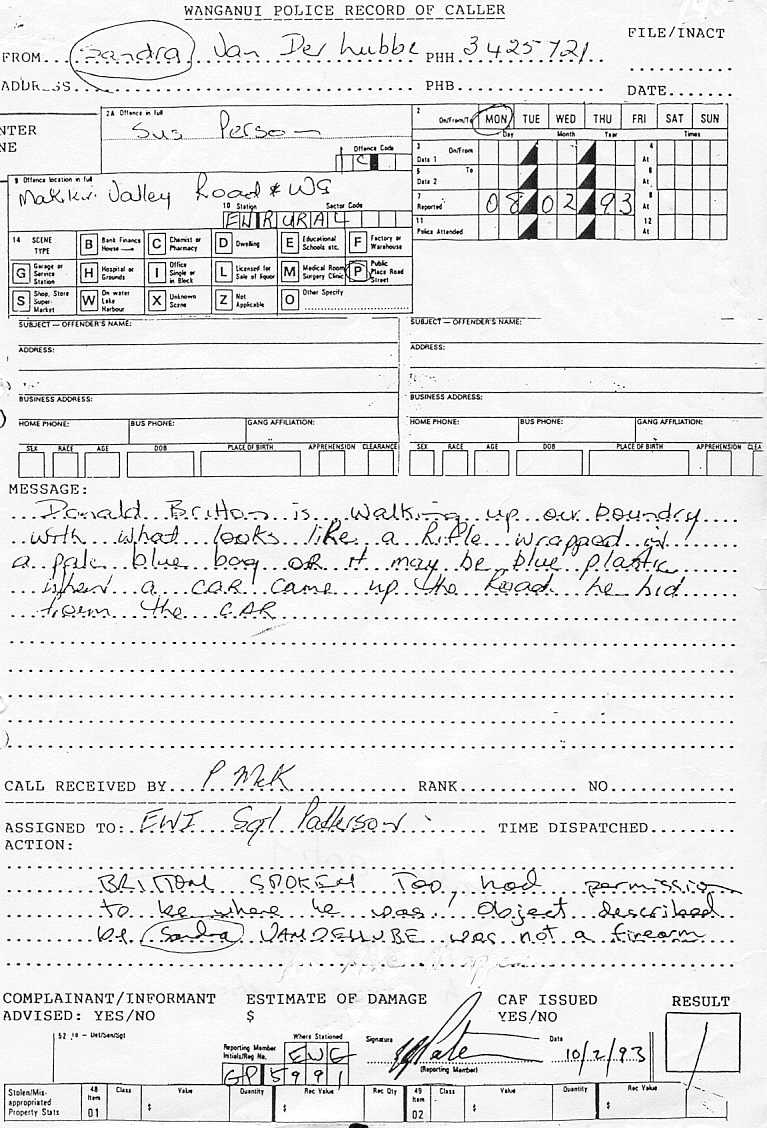 WANGANUI POLICE RECORD OF CALLER
FILE/INACT
FROM Sandra Van Der Lubbe PHH 3425721
ADDR SS PHB DATE
NTER
NE
2A Offence in full
Sus Person
Offence Code
C
2 On/From/To MON TUE WED THU FRI SAT SUN
Day Month Year Times
3 On/From Date 1 4 At
5 To Date 2 6 At
7 Reported 08 02 93 8 At
11 Police Attended 12 At
9 Offence location in full
Makikiwi Valley Road & WG
10 Station Sector Code
EW RURAL
14 SCENE TYPE
B Bank Finance House
C Chemist or Pharmacy
D Dwelling
E Educational Schools etc.
F Factory or Warehouse
G Garage or Service Station
H Hospital or Grounds
I Office Single or in Block
L Licensed for Sale of liquor
M Medical Room Surgery Clinic
P Public Place Road Street
S Shop, Store Super-Market
W On water Lake Harbour
X Unknown Scene
Z Not Applicable
O Other Specify
SUBJECT — OFFENDER'S NAME: SUBJECT — OFFENDER'S NAME:
ADDRESS: ADDRESS:
BUSINESS ADDRESS: BUSINESS ADDRESS:
HOME PHONE: BUS PHONE: GANG AFFILIATION: HOME PHONE: BUS PHONE: GANG AFFILIATION:
SEX RACE AGE DOB PLACE OF BIRTH APPREHENSION CLEARANCE SEX RACE AGE DOB PLACE OF BIRTH APPREHENSION CLEA
MESSAGE:
Donald Britton is walking up our boundry
with what looks like a Rifle wrapped in
a pale blue bag or it may be blue plastic
when a CAR came up the Road he hid
from the CAR
CALL RECEIVED BY P McK RANK NO
ASSIGNED TO: EWI Sgt Patterson TIME DISPATCHED
ACTION:
BRITTON SPOKEN Too, had permission
to be where he was, Object described
be Sandra VANDELUBE was not a firearm
COMPLAINANT/INFORMANT ESTIMATE OF DAMAGE CAF ISSUED RESULT
ADVISED: YES/NO $ YES/NO
Reporting Member Initials/Reg No. Where Stationed Signature Date
GP 5991 10/2/93
(Reporting Member)
Stolen/Mis-appropriated Property Stats 48 Item 01 Class Value $ Quantity Rec Value $ Rec Qty 49 Item 02 Class Value $ Quantity Rec Value $